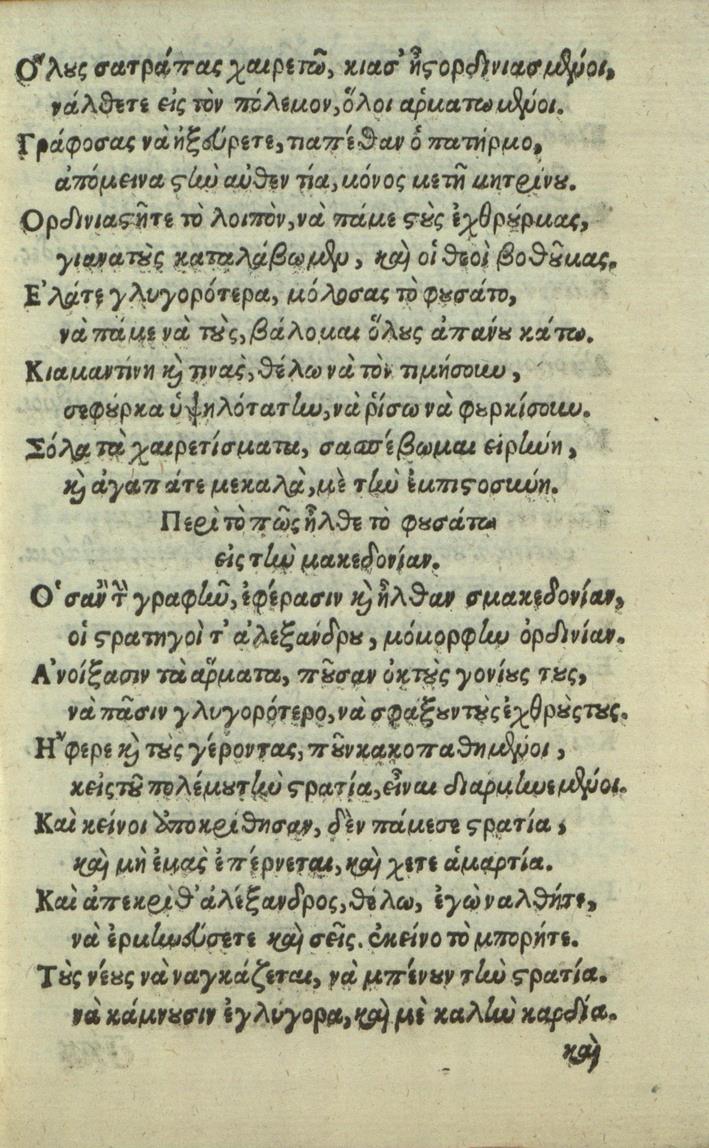 Ὅλȣς σατράπας χαιρετῶ, κιας ἦς ορδινιασμένοι,
νάλθετε εἰς τὸν πόλεμον, ὅλοι αρματωμένοι.
Γράφοσας νὰ ἠξȣ́ρετε, τιαπέθαν ὁ πατήρμο,
ἀπόμεινα ςτὴν αὐθεντία, μόνος μετῆ μητρίνȣ.
Ορδινιαςῆτε τὸ λοιπὸν, νὰ πάμε ςȣ̀ς ἐχθρȣ́ρμας,
γιανατȣ̀ς καταλάβωμεν, καὶ οἱ θεοὶ βοθȣ͂μας.
Ἐλάτε γλυγορότερα, μόλοσας τὸ φȣσάτο,
νὰ πάμε νὰ τȣ̀ς, βάλομαι ὅλȣς ἀπανȣ κάτω.
Κιαμαντίνη κὶ τινὰς, θέλω νὰ τὸν τιμήσουν,
σεφȣ́ρκα ὑψηλότατην, νὰ ῥίσω νὰ φȣρκίσουν.
Σόλα τὰ χαιρετίσματα, σασπέβωμαι εἰρήνη,
κὶ ἀγαπάτε μεκαλὰ, μὲ τὴν ἐμπιςοσύνη.
Περὶ τὸ πῶς ἦλθε τὸ φȣσάτω
εἰς τὴν μακεδονίαν.
Ὁ σαν τῆ γραφὴν, ἐφέρασιν κὶ ἦλθαν σμακεδονίαν,
οἱ ςρατηγοὶ τ' ἀλεξάνδρȣ, μόμορφην ὀρδινίαν.
Ἀνοίξασιν τὰ ἅρματα, πȣ͂σαν ὀκτȣ̀ς γονίȣς τȣς,
νὰ πᾶσιν γλυγορότερο, νὰ σφάξȣν τȣ̀ς ἐχθρȣ̀ς τȣς.
Ἤφερε κὶ τȣ̀ς γέροντας, πȣ͂ν κακοπαθημένοι,
κεἰς τȣ͂ πολέμȣ τὴν ςρατία, εἶναι διαρμηνεμένοι.
Καὶ κείνοι ὑποκρίθησαν, δὲν πάμεσε ςρατία,
καὶ μὴ ἐμᾶς ἐπέρνεται, καὶ χετε ἁμαρτία.
Καὶ ἀπεκρὶθ' ἀλέξανδρος, θέλω, ἐγὼ ναλθῆτε,
νὰ ἐρμηνȣ́σετε καὶ σεῖς. ἐκείνο τὸ μπορῆτε.
Τȣ̀ς νέȣς νὰ ναγκάζεται, νὰ μπένȣν τὴν ςρατία.
νὰ κάμνȣσιν ἐγλύγορα, καὶ μὲ καλὴν καρδία.
καὶ